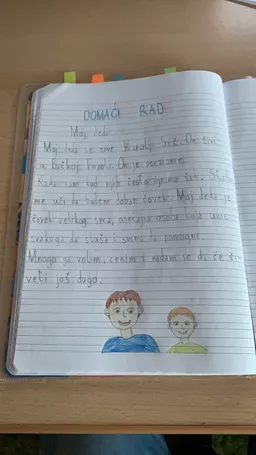 DOMAĆI RAD
Moj deda
Moj deda se zove Kiralj Soť. On živi
u Bačkoj Topoli. On je penzioner.
Kada sam kod njih često igramo šah. Stalno
me uči da budem dobar čovek. Moj deda je
čovek velikog srca, osećajna osoba koja ume
svakoga da sluša i svima da pomogne.
Mnogo ga volim, cenim i nadam se da će ži
veti još dugo.